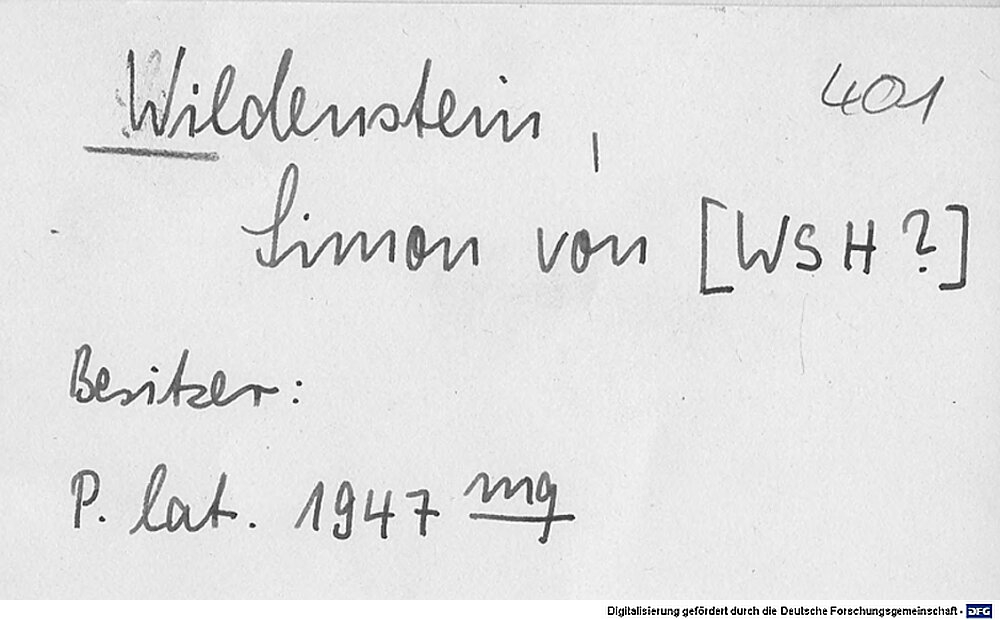 Wildenstein, 401
Simon von [WSH?]
Besitzer:
P. lat. 1947 mg
Digitalisierung gefördert durch die Deutsche Forschungsgemeinschaft - DFG